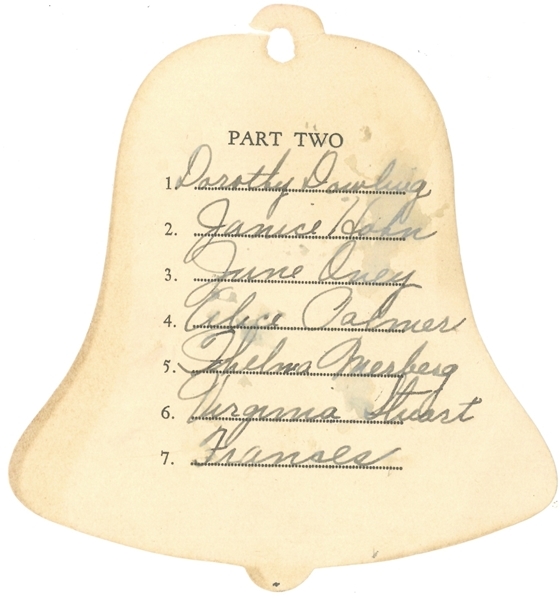 PART TWO
1. Dorothy Dowling
2. Janice Hohn
3. June Oney
4. Alice Palmer
5. Thelma
6. Virginia Stuart
7. Franses